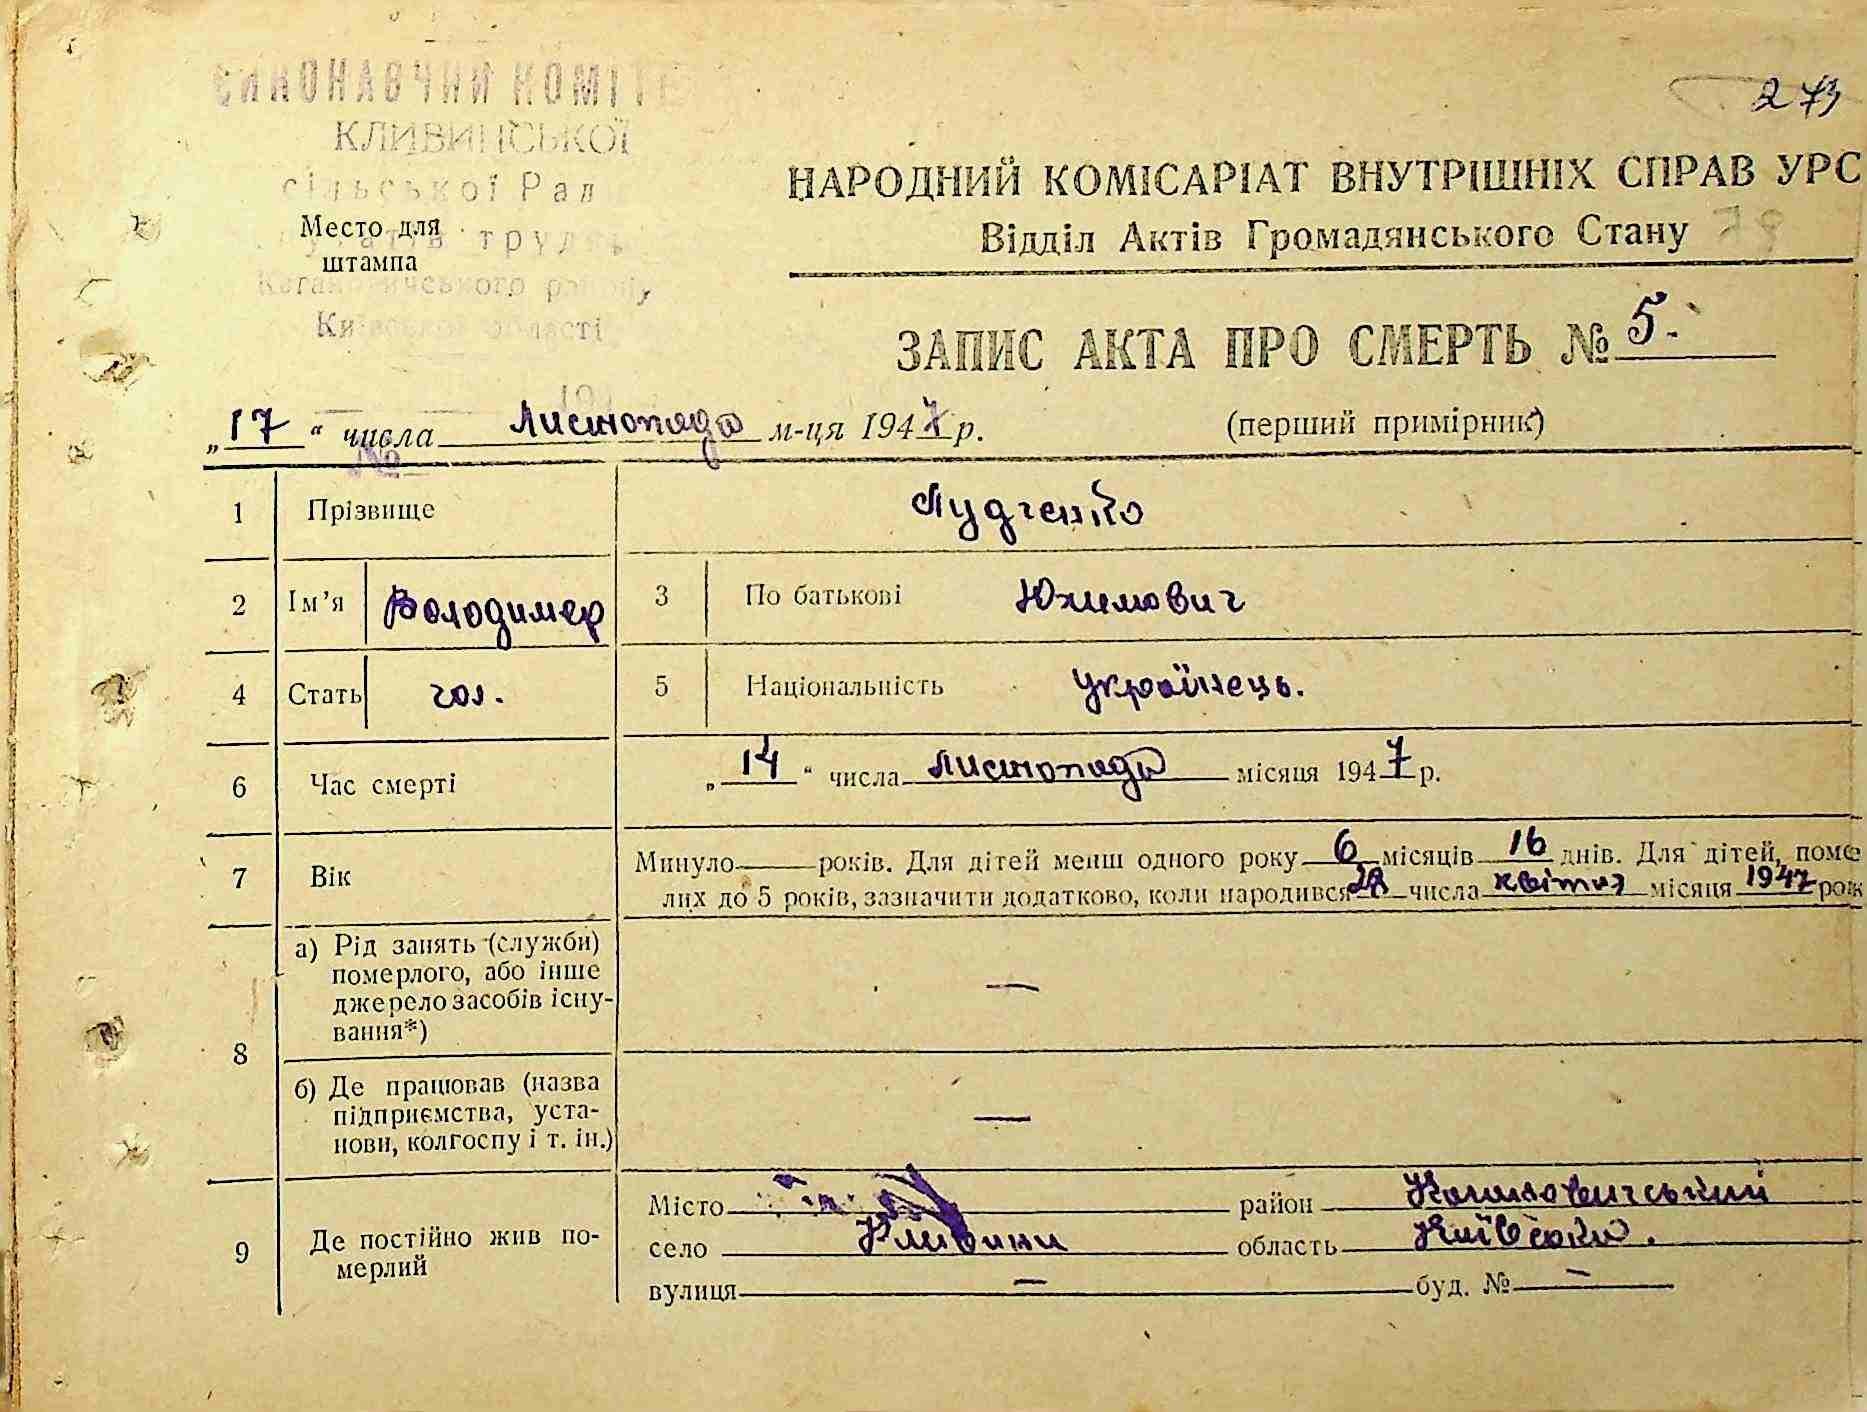 ВИКОНАВЧИЙ КОМІТЕ
КЛИВИНСЬКОЇ
сільської Рад
трудящ
Кагановичського району
Київської області
194
№
273
Место для
штампа
НАРОДНИЙ КОМІСАРІАТ ВНУТРІШНІХ СПРАВ УРС
Відділ Актів Громадянського Стану
ЗАПИС АКТА ПРО СМЕРТЬ № 5.
„17“ числа Листопада м-ця 1947 р. (перший примірник)
1 Прізвище Лудченко
2 Ім’я Володимер 3 По батькові Юхимович
4 Стать чол. 5 Національність Українець.
6 Час смерті „14“ числа Листопада місяця 1947 р.
7 Вік Минуло років. Для дітей менш одного року 6 місяців 16 днів. Для дітей, поме
лих до 5 років, зазначити додатково, коли народився 28 числа квітня місяця 1947 рок
8 а) Рід занять (служби)
померлого, або інше
джерело засобів існу-
вання*) —
б) Де працював (назва
підприємства, уста-
нови, колгоспу і т. ін.) —
9 Де постійно жив по-
мерлий
Місто район Кагановичський
село Кливини область Київська.
вулиця — буд. № —